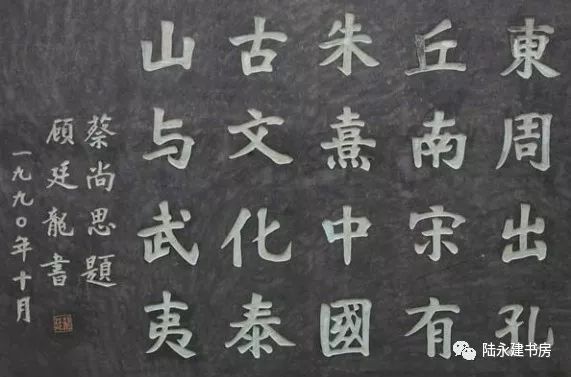 東周出孔
丘南宋有
朱熹中國
古文化泰
山与武夷
蔡尚思題
顧廷龍書
一九九〇年十月
陆永建书房